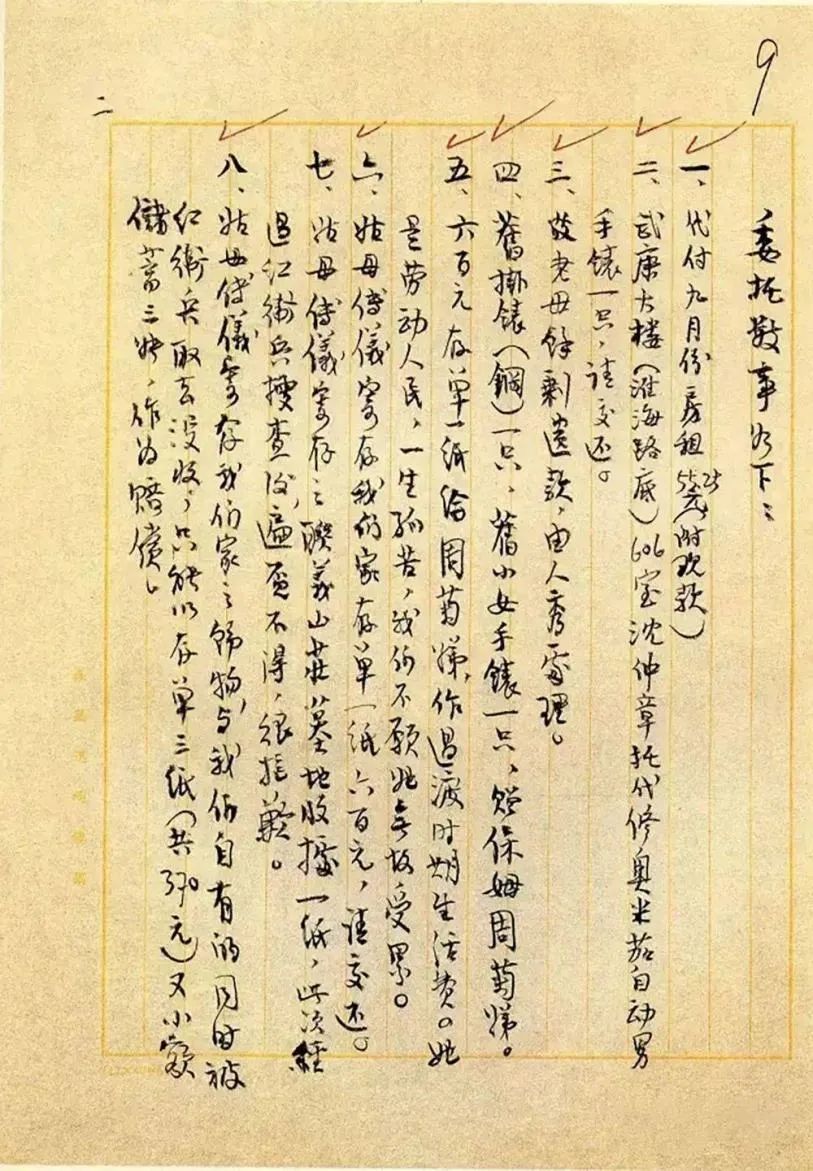 9
二
委托数事如下：
一、代付九月份房租55.25元（附现款）
二、武康大楼（淮海路底）606室沈仲章托代修奥米茄自动男
手錶一只，请交还。
三、故老母餘剩遗款，由人秀處理。
四、舊掛錶（鋼）一只，舊小女手錶一只，赠保姆周菊娣。
五、六百元存单一纸给周菊娣，作过渡时期生活费。她
是劳动人民，一生孤苦，我们不愿她无故受累。
六、姑母傅儀寄存我们家存单一纸六百元，请交还。
七、姑母傅儀寄存之联义山莊墓地收據一纸，此次经
过红衛兵搜查後，遍觅不得，很抱歉。
八、姑母傅儀寄存我们家之饰物，与我们自有的同时被
红衛兵取去没收，只能以存单三纸（共370元）又小额
儲蓄三张，作为赔偿。